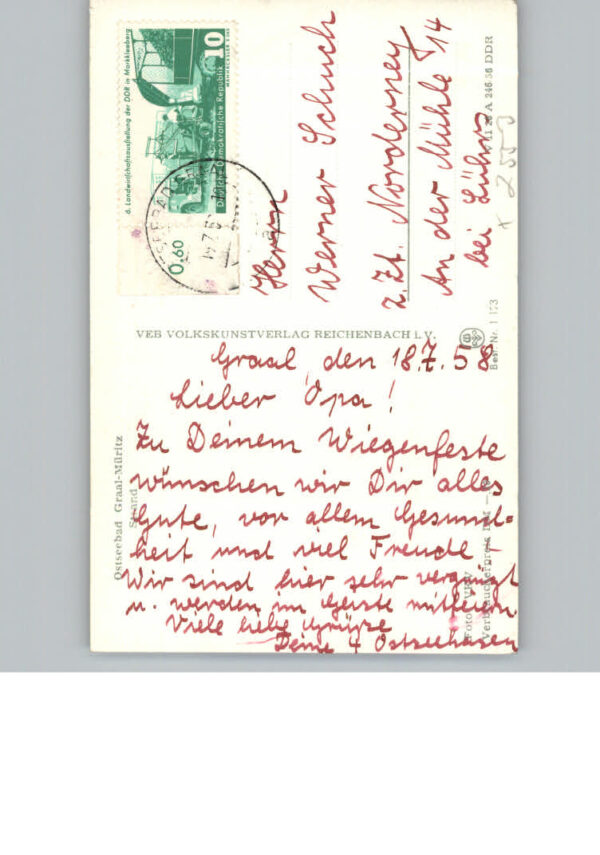 6. Landwirtschaftsausstellung der DDR in Markkleeberg
10
Deutsche Demokratische Republik
0,60
Herrn
Werner Schuch
z. Zt. Norderney
An der Mühle 14
bei Lührs
A 246 58 DDR
VEB VOLKSKUNSTVERLAG REICHENBACH i. V.
Best.-Nr. I 173
Graal, den 18.7.58
Lieber Opa!
Zu Deinem Wiegenfeste
wünschen wir Dir alles
Gute, vor allem Gesund-
heit und viel Freude!
Wir sind hier sehr vergnügt
u. werden im Geiste mitfeiern
Viele liebe Grüsse
Deine 4 Ostseehasen
Ostseebad Graal-Müritz
Strand
Verbraucherpreis